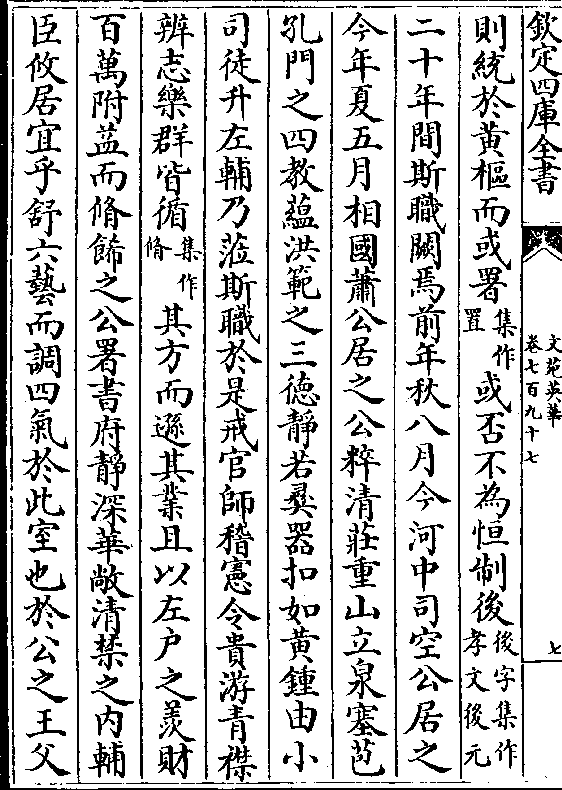 欽定四庫全書
文苑英華
卷七百九十七
七
則統於黄樞而或署集作置或否不為恒制後後字集作孝文後元
二十年間斯職闕焉前年秋八月今河中司空公居之
今年夏五月相國蕭公居之公粹清莊重山立泉塞苞
孔門之四教蘊洪範之三徳靜若彛器扣如黄鍾由小
司徒升左輔乃蒞斯職於是戒官師稽憲令貴游青襟
辨志樂群皆循集作脩其方而遜其業且以左户之羡財
百萬附益而脩餙之公署書府靜深華敞清禁之内輔
臣攸居宜乎舒六藝而調四氣於此室也於公之王父